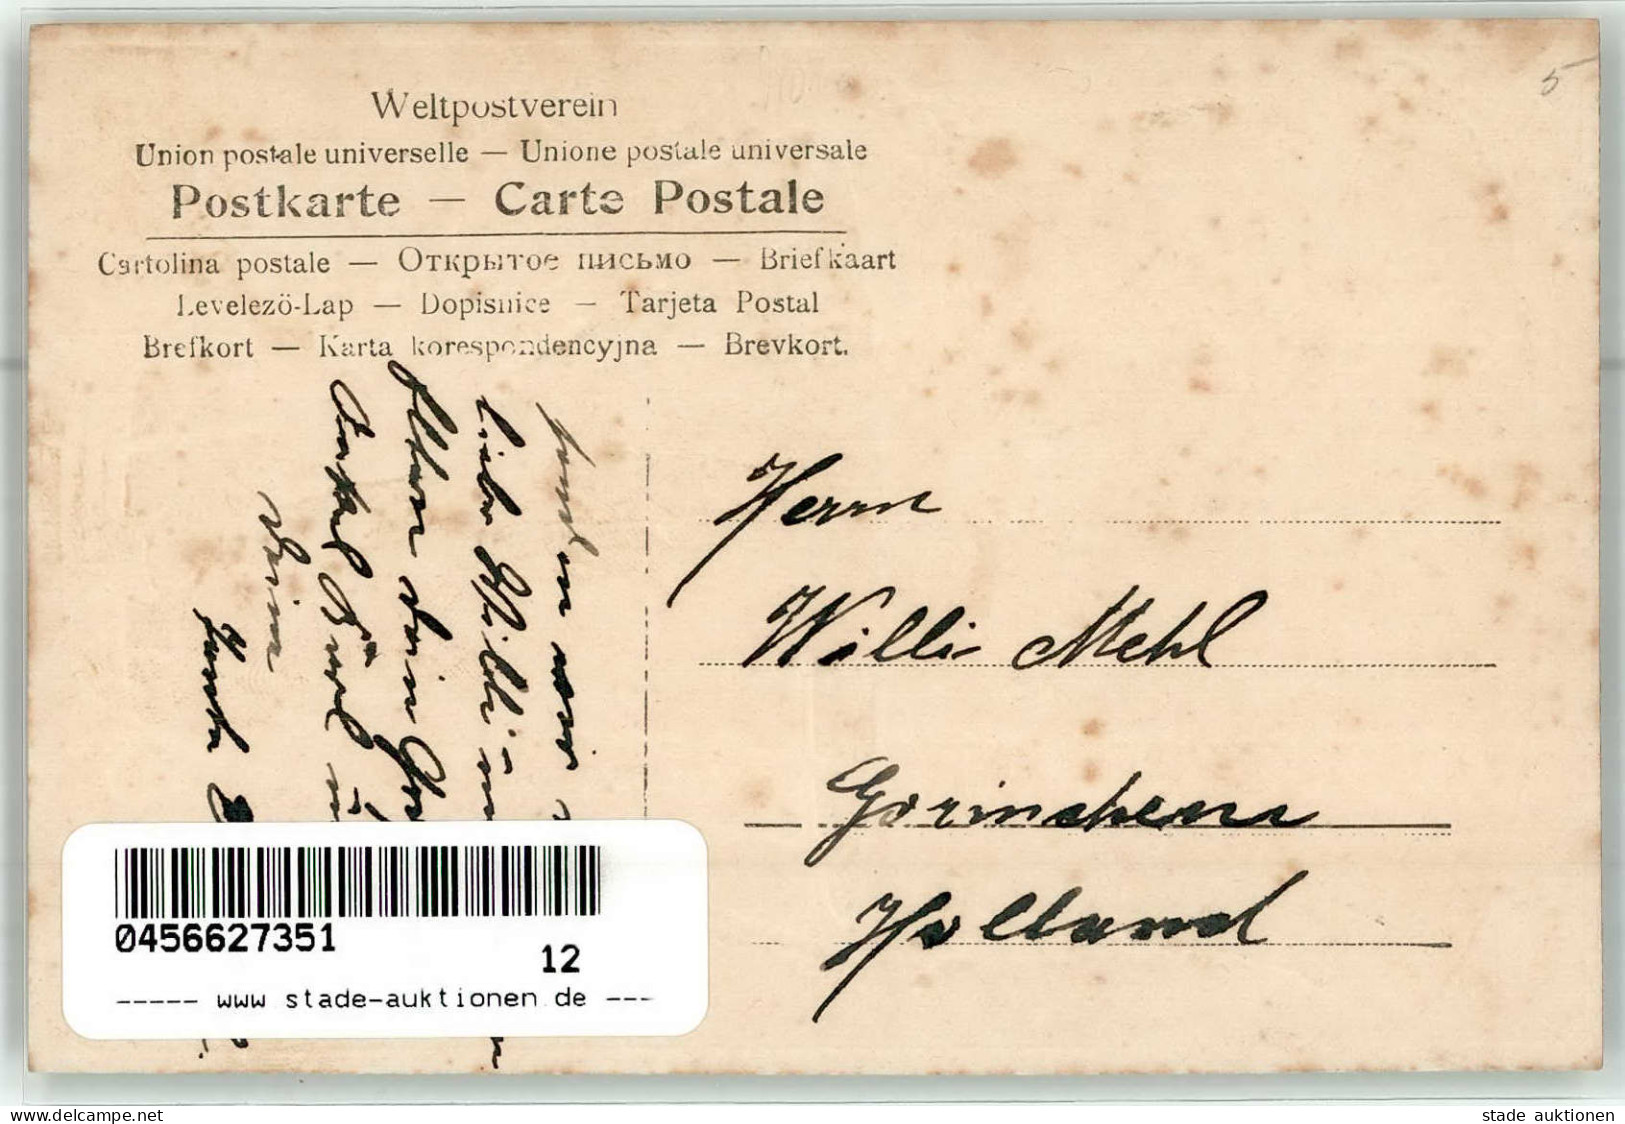 5
Weltpostverein
Union postale universelle — Unione postale universale
Postkarte — Carte Postale
Cartolina postale — Открытое письмо — Briefkaart
Levelezö-Lap — Dopisnice — Tarjeta Postal
Brefkort — Karta korespondencyjna — Brevkort.
senden wir
liebe Willi u
Eltern dein
Onkel
Deine
Tante
Herrn
Willi Mehl
Gorinchem
Holland
0456627351
12
----- www stade-auktionen.de ---
www.delcampe.net
stade auktionen